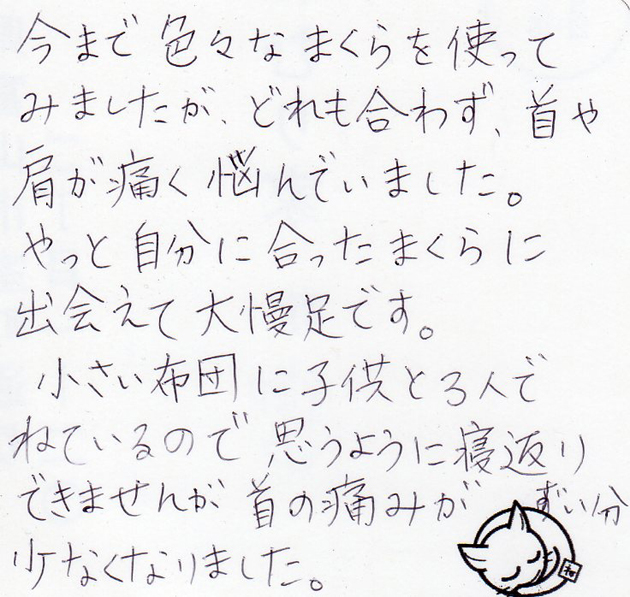 今まで色々なまくらを使って
みましたが、どれも合わず、首や
肩が痛く悩んでいました。
やっと自分に合ったまくらに
出会えて大慢足です。
小さい布団に子供と3人で
ねているので思うように寝返り
できませんが首の痛みがずい分
少なくなりました。
和